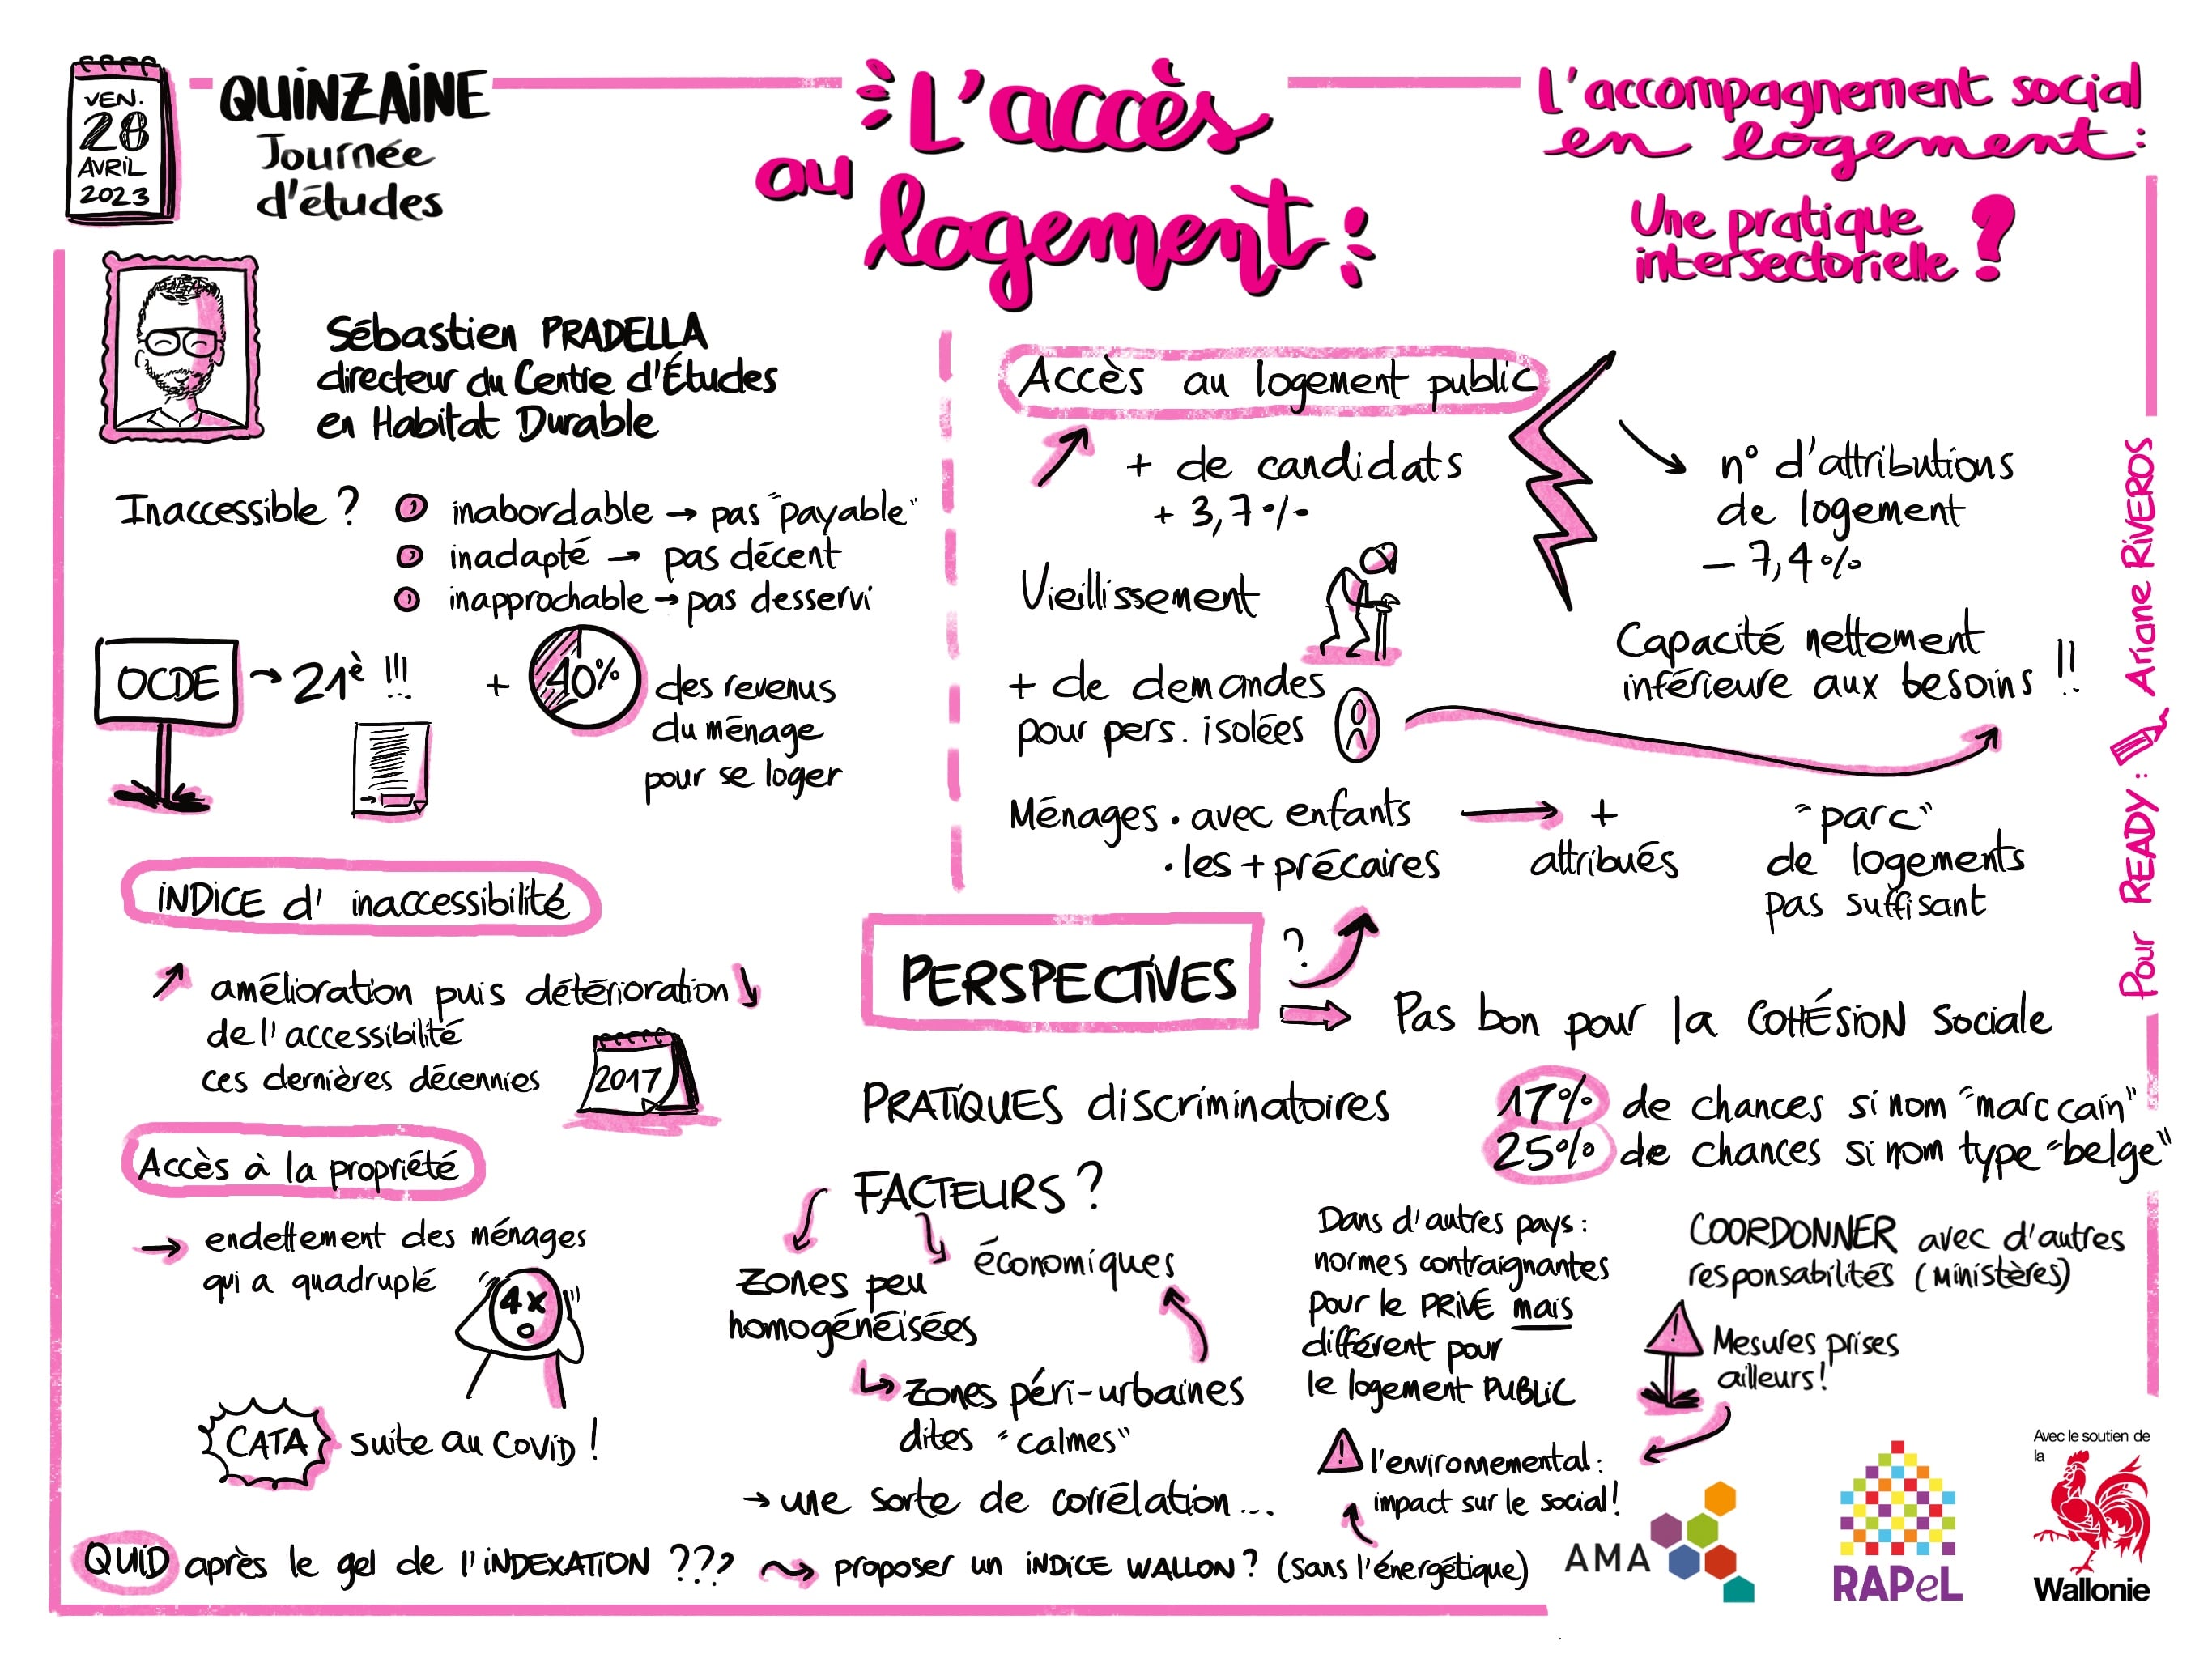 VEN.
28
AVRIL
2023
QUINZAINE
Journée
d'études
L'accès
au
logement
L'accompagnement social
en logement :
Une pratique
intersectorielle ?
Sébastien PRADELLA
directeur du Centre d'Études
en Habitat Durable
Inaccessible ?
inabordable → pas "payable"
inadapté → pas décent
inapprochable → pas desservi
OCDE → 21è !!!
+ 40% des revenus
du ménage
pour se loger
INDICE d'inaccessibilité
amélioration puis détérioration
de l'accessibilité
ces dernières décennies
2017
Accès à la propriété
→ endettement des ménages
qui a quadruplé
4x
CATA suite au COVID !
Accès au logement public
+ de candidats
+ 3,7 %
n° d'attributions
de logement
- 7,4 %
Vieillissement
Capacité nettement
inférieure aux besoins !!
+ de demandes
pour pers. isolées
Ménages • avec enfants
• les + précaires
→ +
attribués
"parc"
de logements
pas suffisant
PERSPECTIVES
?
⇒ Pas bon pour la COHÉSION Sociale
PRATIQUES discriminatoires
17% de chances si nom "marccain"
25% de chances si nom type "belge"
FACTEURS ?
économiques
zones peu
homogénéisées
zones péri-urbaines
dites "calmes"
→ une sorte de corrélation...
Dans d'autres pays :
normes contraignantes
pour le PRIVÉ mais
différent pour
le logement PUBLIC
COORDONNER avec d'autres
responsabilités (Ministères)
! Mesures prises
ailleurs !
! l'environnemental :
impact sur le social !
QUID après le gel de l'INDEXATION ???
proposer un INDICE WALLON ? (sans l'énergétique)
Pour READY : Ariane RIVEROS
AMA
RAPeL
Avec le soutien de
la
Wallonie